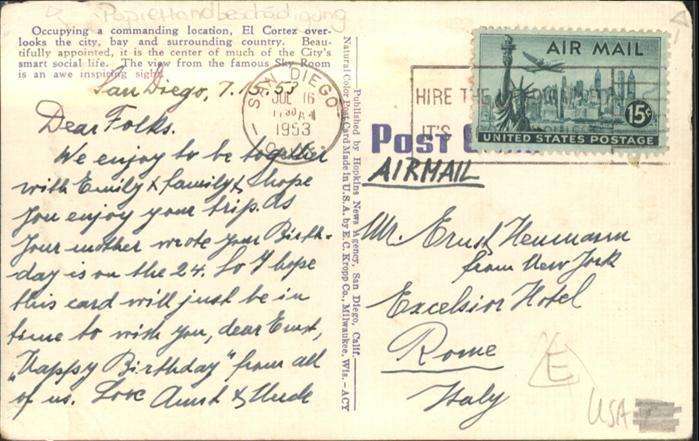 Papier Handbeschädigung
Occupying a commanding location, El Cortez over-
looks the city, bay and surrounding country. Beau-
tifully appointed, it is the center of much of the City's
smart social life. The view from the famous Sky Room
is an awe inspiring sight.
San Diego, 7.15.53
Dear Folks.
We enjoy to be together
with Emily & family & hope
you enjoy your trip. As
your mother wrote your Birth-
day is on the 24. So I hope
this card will just be in
time to with you, dear Ernst,
"Happy Birthday" from all
of us. Love Aunt & Uncle
Natural Color Post Card Made in U.S.A. by E. C. Kropp Co., Milwaukee, Wis. — ACY
Published by Hopkins News Agency, San Diego, Calif.
SAN DIEGO
JUL 16
1130 AM
1953
CALIF.
HIRE THE
IT'S
AIR MAIL
15¢
UNITED STATES POSTAGE
POST
AIRMAIL
Mr. Ernst Heumann
from New York
Excelsior Hotel
Rome
Italy
E
USA